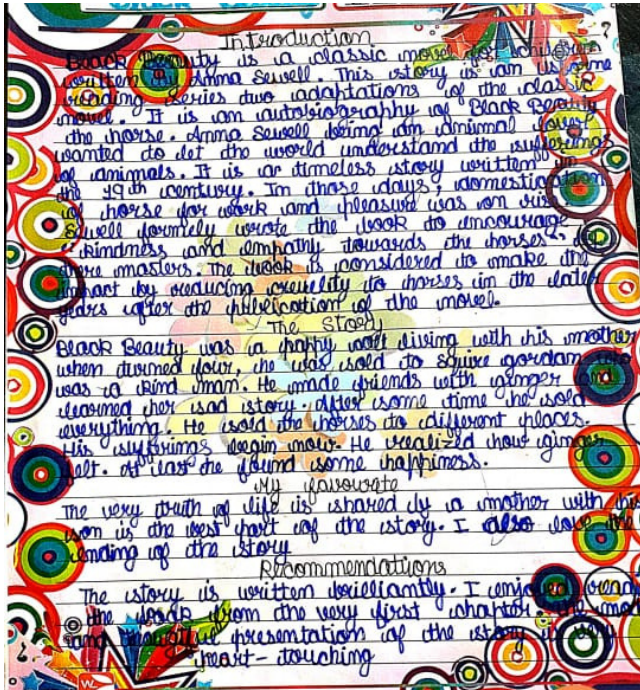 Introduction
Black Beauty is a classic novel for children
written by Anna Sewell. This story is an usborne
reading series two adaptations of the classic
novel. It is an autobiography of Black Beauty
the horse. Anna Sewell being an animal lover
wanted to let the world understand the sufferings
of animals. It is a timeless story written in
the 19th century. In those days, domestication
of horse for work and pleasure was on rise.
Sewell formely wrote the book to encourage
"kindness and empathy towards the horses" by
there masters. The book is considered to make the
impact by reducing cruelity to horses in the later
years after the publication of the novel.
The Story
Black Beauty was a happy colt living with his mother
when turned four, he was sold to squire gordan who
was a kind man. He made friends with ginger and
learned her sad story. After some time he sold
everything. He sold the horses to different places.
His sufferings begin now. He realized how ginger
felt. At last he found some happiness.
My favourate
The very truth of life is shared by a mother with his
son is the best part of the story. I also love the
ending of the story
Recommendations
The story is written brilliantly. I enjoyed
the book from the very first chapter. The
and presentation of the story is very
heart-touching